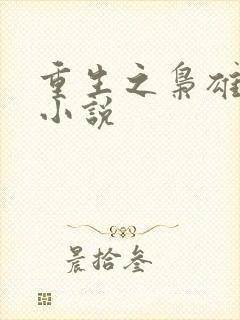 重生之枭雄
小说
晨拾叁